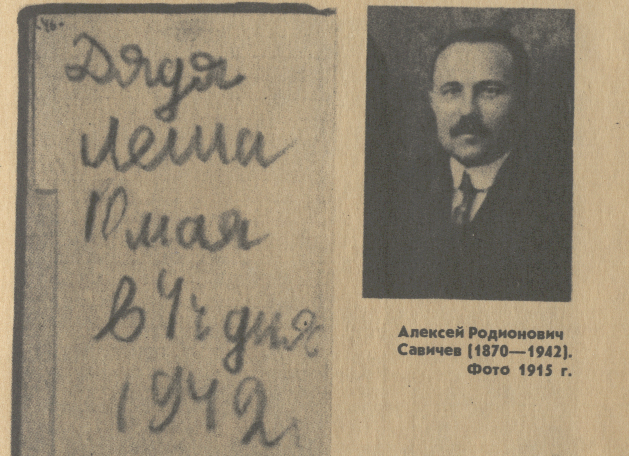 Дядя
Леша
10 мая
в 4 ч дня
1942 г
Алексей Родионович
Савичев (1870—1942).
Фото 1915 г.